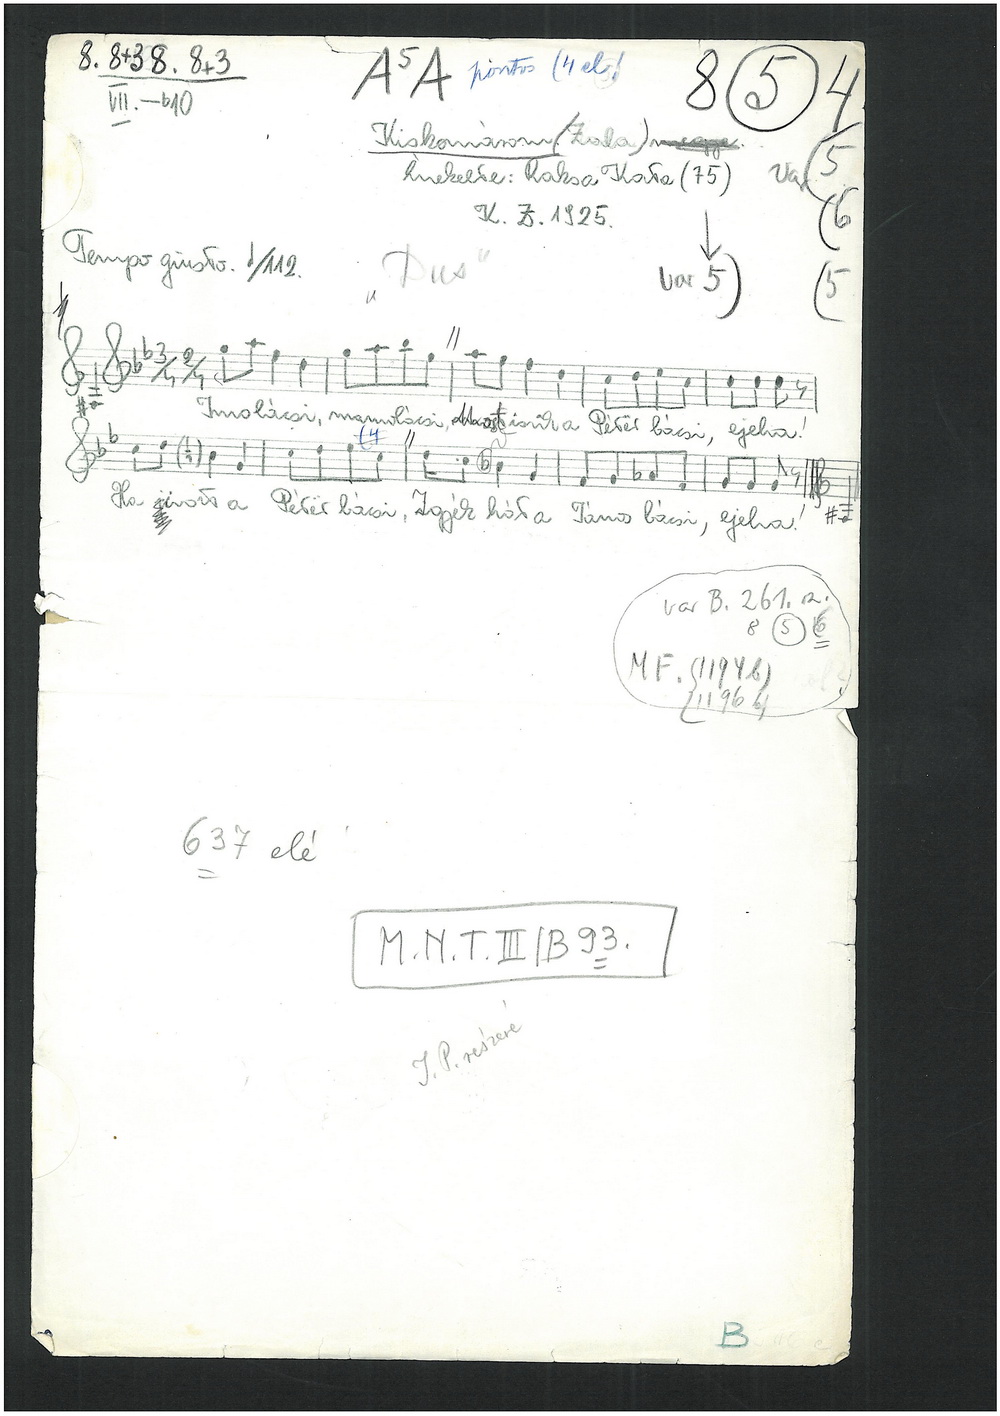 8. 8+3 8. 8+3
VII. – b10
A⁵A pontos (4 el.)
8 (5) 4
Kiskomárom (Zala) megye.
Énekelte: Kaksa Kata (75)
K. Z. 1925.
Var (5
(6
(5
var 5)
Tempo giusto. ♩/112.
„Dus"
3/4 2/4
Imolácsi, mamolácsi, iszik a Pétër bácsi, ejeha!
(4
Ha ivott a Pétër bácsi, Igyék hát a János bácsi, ejeha!
var B. 261. sz.
8 (5) 6
M F. (1194 b)
(1196 b)
637 elé
M.N.T. III/B 93.
J. P. részére
B